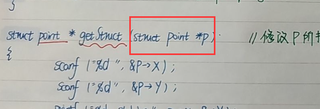 struct point * getStruct (struct point *p) //修改P的
{
scanf ("%d", &p->X);
scanf ("%d", &p->Y);